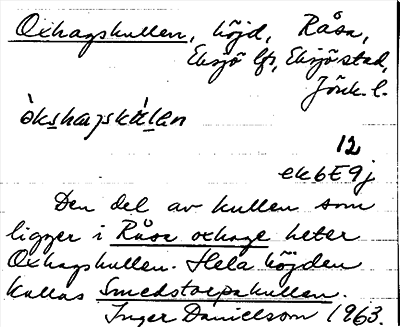 Oxhagskullen, höjd, Råsa,
Eksjö lfs, Eksjö stad,
Jönk. l.
òkshagskúlen
12
ek6E9j
Den del av kullen som
ligger i Råsa oxhage heter
Oxhagskullen. Hela höjden
kallas Smedstorpakullen.
Inger Danielsson 1963.